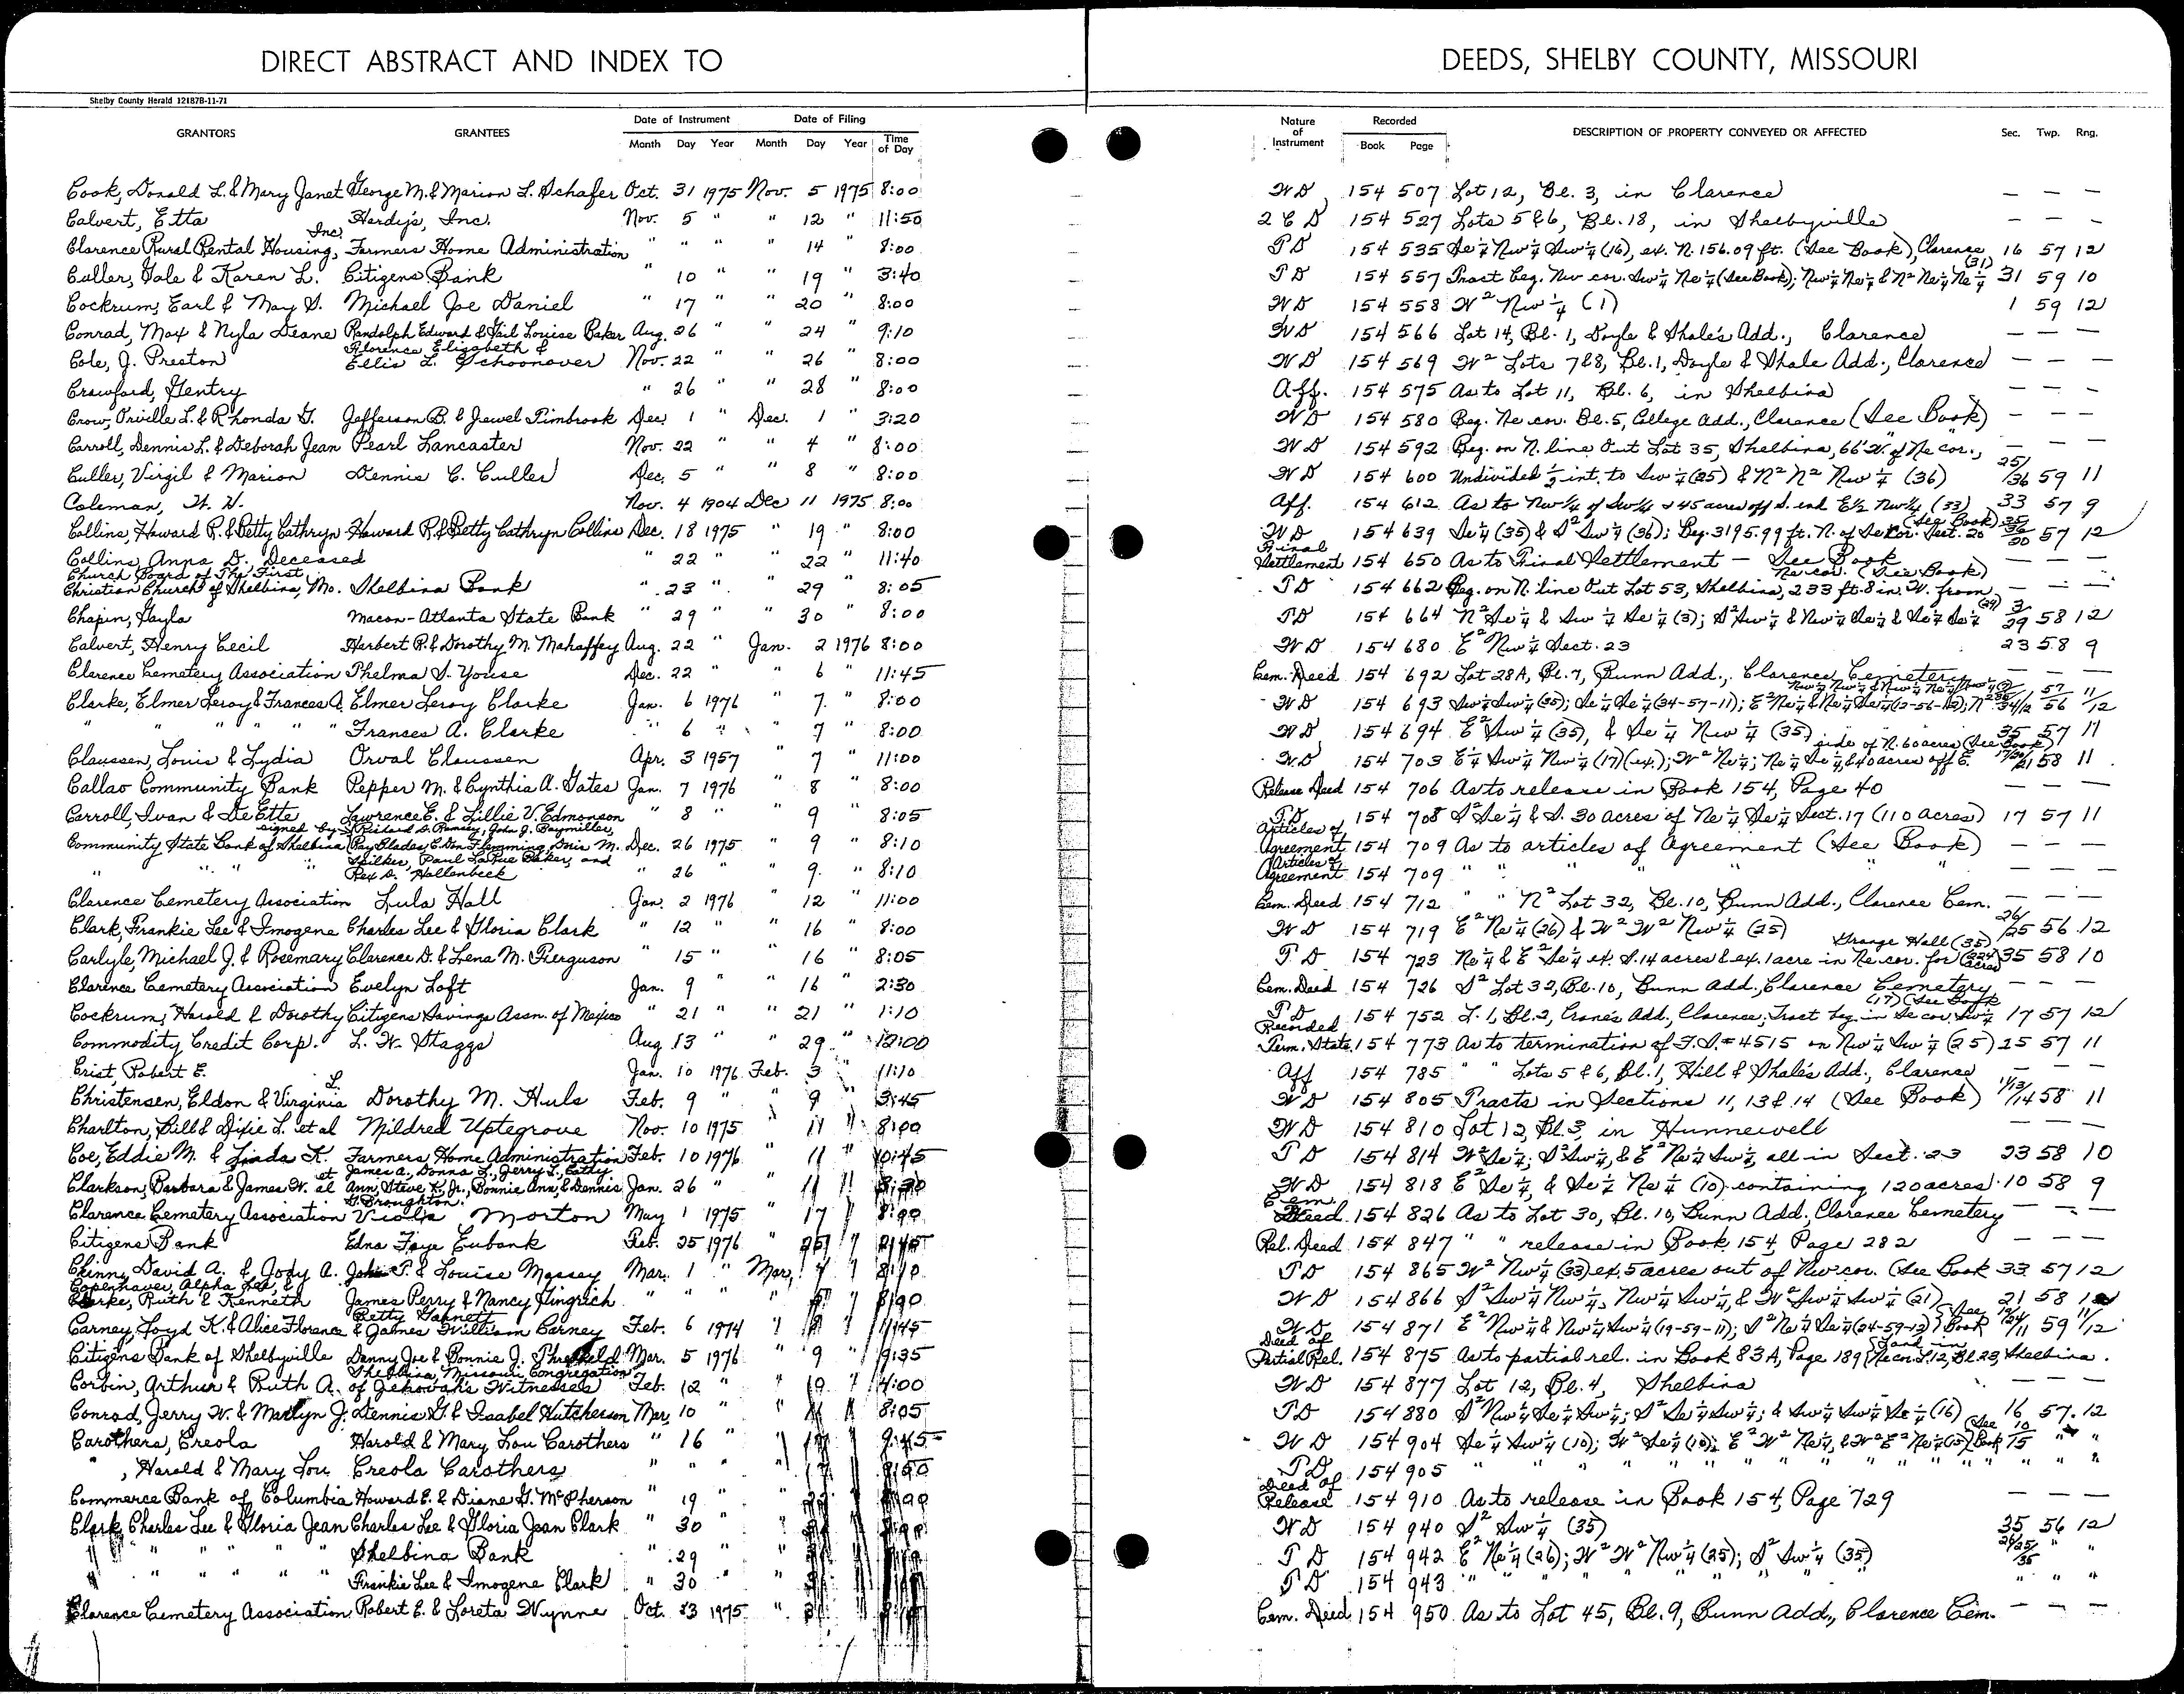 DIRECT ABSTRACT AND INDEX TO DEEDS, SHELBY COUNTY, MISSOURI
Shelby County Herald 12187B-11-71
GRANTORS GRANTEES Date of Instrument Date of Filing Nature of Instrument Recorded DESCRIPTION OF PROPERTY CONVEYED OR AFFECTED Sec. Twp. Rng.
Month Day Year Month Day Year Time of Day Book Page
Cook, Donald L. & Mary Janet George M. & Marion L. Schafer Oct. 31 1975 Nov. 5 1975 8:00 WD 154 507 Lot 12, Bl. 3, in Clarence — — —
Calvert, Etta Hardy's, Inc. Nov. 5 " " 12 " 11:50 2 C D 154 527 Lots 5 & 6, Bl. 18, in Shelbyville — — —
Clarence Rural Rental Housing, Inc. Farmers Home Administration " " " " 14 " 8:00 TD 154 535 Se¼ Nw¼ Sw¼ (16), ex. N. 156.09 ft. (See Book), Clarence 16 57 12
Culler, Gale & Karen L. Citizens Bank " 10 " 19 " 3:40 TD 154 557 Tract beg. Nw cor. Sw¼ Ne¼ (See Book); Nw¼ Ne¼ & N² Ne¼ Ne¼ (31) 31 59 10
Cockrum, Earl & May S. Michael Joe Daniel " 17 " " 20 " 8:00 WD 154 558 W² Nw¼ (1) 1 59 12
Conrad, Max & Nyla Deane Randolph Edward & Gail Louise Baker Aug. 26 " " 24 " 9:10 WD 154 566 Lot 14, Bl. 1, Doyle & Shale's Add., Clarence — — —
Cole, J. Preston Florence Elizabeth & Ellis L. Schoonover Nov. 22 " " 26 " 8:00 WD 154 569 W² Lots 7&8, Bl. 1, Doyle & Shale Add., Clarence — — —
Crawford, Gentry " 26 " " 28 " 8:00 Aff. 154 575 As to Lot 11, Bl. 6, in Shelbina — — —
Crow, Orville L. & Rhonda G. Jefferson B. & Jewel Timbrook Dec. 1 " Dec. 1 " 3:20 WD 154 580 Beg. Ne cor. Bl. 5, College Add., Clarence (See Book) — — —
Carroll, Dennis L. & Deborah Jean Pearl Lancaster Nov. 22 " " 4 " 8:00 WD 154 592 Beg. on N. line Out Lot 35, Shelbina, 66' W. of Ne cor., — — —
Culler, Virgil & Marion Dennis C. Culler Dec. 5 " " 8 " 8:00 WD 154 600 Undivided ½ int. to Sw¼ (25) & N² N² Nw¼ (36) 25/36 59 11
Coleman, W. W. Nov. 4 1904 Dec 11 1975 8:00 Aff. 154 612 As to Nw¼ of Sw¼ & 45 acres off S. end E½ Nw¼ (33) 33 57 9
Collins, Howard R. & Betty Cathryn Howard R. & Betty Cathryn Collins Dec. 18 1975 " 19 " 8:00 WD 154 639 Se¼ (35) & S² Sw¼ (36); Beg. 3195.99 ft. N. of Se cor. Sect. 20 (See Book) 35/36/20 57 12
Collins, Anna D., Deceased " 22 " " 22 " 11:40 Final Settlement 154 650 As to Final Settlement — See Book — — —
Church Board of The First Christian Church of Shelbina, Mo. Shelbina Bank " 23 " " 29 " 8:05 TD 154 662 Beg. on N. line Out Lot 53, Shelbina, 233 ft. 8 in. W. from Ne cor. (See Book) — — —
Chapin, Gayla Macon-Atlanta State Bank " 29 " " 30 " 8:00 TD 154 664 N² Se¼ & Sw¼ Se¼ (3); S² Sw¼ & Nw¼ Se¼ & Se¼ Se¼ (29) 3/29 58 12
Calvert, Henry Cecil Herbert R. & Dorothy M. Mahaffey Aug. 22 " Jan. 2 1976 8:00 WD 154 680 E² Nw¼ Sect. 23 23 58 9
Clarence Cemetery Association Thelma S. Youse Dec. 22 " " 6 " 11:45 Cem. Deed 154 692 Lot 28A, Bl. 7, Bunn Add., Clarence Cemetery — — —
Clarke, Elmer Leroy & Frances A. Elmer Leroy Clarke Jan. 6 1976 " 7 " 8:00 WD 154 693 Sw¼ Sw¼ (35); Se¼ Se¼ (34-57-11); E² Ne¼ & Ne¼ Se¼ (12-56-12);
" " " " " Franses A. Clarke " 6 " " 7 " 8:00 WD 154 694 E² Sw¼ (35), & Se¼ Nw¼ (35) 35 57 11
Claussen, Louis & Lydia Orval Claussen Apr. 3 1957 " 7 " 11:00 WD 154 703 E¼ Sw¼ Nw¼ (17) (ex.); W² Ne¼; Ne¼ Se¼, & 40 acres off E. side of N. 60 acres (See Book) 58 11
Callao Community Bank Pepper M. & Cynthia A. Gates Jan. 7 1976 " 8 " 8:00 Release Deed 154 706 As to release in Book 154, Page 40 — — —
Carroll, Ivan & DeEtte Lawrence E. & Lillie V. Edmonson " 8 " " 9 " 8:05 TD 154 708 S² Se¼ & S. 30 acres of Ne¼ Se¼ Sect. 17 (110 acres) 17 57 11
Community State Bank of Shelbina signed by Richard D. Ramsey, John J. Baymiller, Ray Blades, C. Don Flemming, Doris M. Dec. 26 1975 " 9 " 8:10 Articles of Agreement 154 709 As to articles of Agreement (See Book) — — —
" " " " Spilker, Paul LaRue Baker, and Rex D. Hallenbeck " 26 " " 9 " 8:10 Articles of Agreement 154 709 " " " " " " — — —
Clarence Cemetery Association Lula Hall Jan. 2 1976 " 12 " 11:00 Cem. Deed 154 712 " " N² Lot 32, Bl. 10, Bunn Add., Clarence Cem. — — —
Clark, Frankie Lee & Imogene Charles Lee & Gloria Clark " 12 " " 16 " 8:00 WD 154 719 E² Ne¼ (26) & W² W² Nw¼ (25) 26/25 56 12
Carlyle, Michael J. & Rosemary Clarence D. & Lena M. Ferguson " 15 " " 16 " 8:05 TD 154 723 Ne¼ & E² Se¼ ex. S. 14 acres & ex. 1 acre in Ne cor. for Grange Hall (35) (224 acres) 35 58 10
Clarence Cemetery Association Evelyn Loft Jan. 9 " " 16 " 2:30 Cem. Deed 154 726 S² Lot 32, Bl. 10, Bunn Add., Clarence Cemetery — — —
Cockrum, Harold & Dorothy Citizens Savings Assn. of Mexico " 21 " " 21 " 1:10 TD 154 752 L. 1, Bl. 2, Crane's Add., Clarence; Tract beg. in Se cor. Sw¼ (17) (See Book 17 57 12
Commodity Credit Corp. L. W. Staggs Aug 13 " 29 " 12:00 Recorded Term. State. 154 773 As to termination of F.S. # 4515 on Nw¼ Sw¼ (25) 25 57 11
Crist, Robert E. Jan. 10 1976 Feb. 3 " 11:10 Aff 154 785 " " Lots 5 & 6, Bl. 1, Hill & Shale's Add., Clarence — — —
Christensen, Eldon & Virginia L. Dorothy M. Huls Feb. 9 " " 9 " 3:45 WD 154 805 Tracts in Sections 11, 13 & 14 (See Book) 11/13/14 58 11
Charlton, Bill & Dixie L. et al Mildred Uptegrove Nov. 10 1975 " 11 " 8:00 WD 154 810 Lot 12, Bl. 3, in Hunnewell — — —
Coe, Eddie M. & Linda K. Farmers Home Administration Feb. 10 1976 " 11 " 10:45 TD 154 814 W² Se¼; S² Sw¼, & E² Ne¼ Sw¼, all in Sect. 23 23 58 10
Clarkson, Barbara & James W. et al James A., Donna L., Jerry L., Cathy Ann, Steve K., Jr., Bonnie Ann, & Dennis G. Broughton Jan. 26 " " 11 " 8:30 WD 154 818 E² Se¼, & Se¼ Ne¼ (10) containing 120 acres 10 58 9
Clarence Cemetery Association Viola Morton May 1 1975 " 17 " Cem. Deed 154 826 As to Lot 30, Bl. 10, Bunn Add., Clarence Cemetery — — —
Citizens Bank Edna Faye Eubank Feb. 25 1976 " 25 " 2:45 Rel. Deed 154 847 " " release in Book 154, Page 282 — — —
Chinn, David A. & Jody A. John P. & Louise Massey Mar. 1 " Mar. TD 154 865 W² Nw¼ (33) ex. 5 acres out of Nw cor. (See Book 33 57 12
Copenhaver, Alpha Lee, & Clarke, Ruth & Kenneth James Perry & Nancy Gingrich " " " " WD 154 866 S² Sw¼ Nw¼, Nw¼ Sw¼, & W² Sw¼ Sw¼ (21) 21 58
Carney, Loyd K. & Alice Florence Betty Garnett & James William Carney Feb. 6 1974 " 8 " 11:45 WD 154 871 E² Nw¼ & Nw¼ Sw¼ (19-59-11); S² Ne¼ Se¼ (24-59-12) (See Book 59 11/12
Citizens Bank of Shelbyville Danny Joe & Bonnie J. Mar. 5 1976 " 9 " 9:35 Deed of Partial Rel. 154 875 As to partial rel. in Book 83A, Page 189 (Land in Ne cor. L. 12, Bl 23, Shelbina.
Corbin, Arthur & Ruth A. Shelbina, Missouri Congregation of Jehovah's Witnesses Feb. 12 " " 10 " 4:00 WD 154 877 Lot 12, Bl. 4, Shelbina — — —
Conrad, Jerry W. & Marilyn J. Dennis G. & Isabel Hutcherson Mar. 10 " " 8:05 TD 154 880 S² Nw¼ Se¼ Sw¼; S² Se¼ Sw¼; & Sw¼ Sw¼ Se¼ (16) 16 57 12
Carothers, Creola Harold & Mary Lou Carothers " 16 " " 9:45 WD 154 904 Se¼ Sw¼ (10); W² Se¼ (10); E² W² Ne¼, & W² E² Ne¼ (15) (See Book 10/15 " "
" , Harold & Mary Lou Creola Carothers " " " " TD 154 905 " " " " " " " " " "
Commerce Bank of Columbia Howard E. & Diane G. McPherson " 19 " " Deed of Release 154 910 As to release in Book 154, Page 729 — — —
Clark, Charles Lee & Gloria Jean Charles Lee & Gloria Jean Clark " 30 " " WD 154 940 S² Sw¼ (35) 35 56 12
" " " " " Shelbina Bank " 29 " " TD 154 942 E² Ne¼ (26); W² W² Nw¼ (25); S² Sw¼ (35) 26/25/35 " "
" " " " " Frankie Lee & Imogene Clark " 30 " " TD 154 943 " " " " " " " " " "
Clarence Cemetery Association Robert E. & Loreta Wynne Oct. 23 1975 " Cem. Deed 154 950 As to Lot 45, Bl. 9, Bunn Add., Clarence Cem. — — —